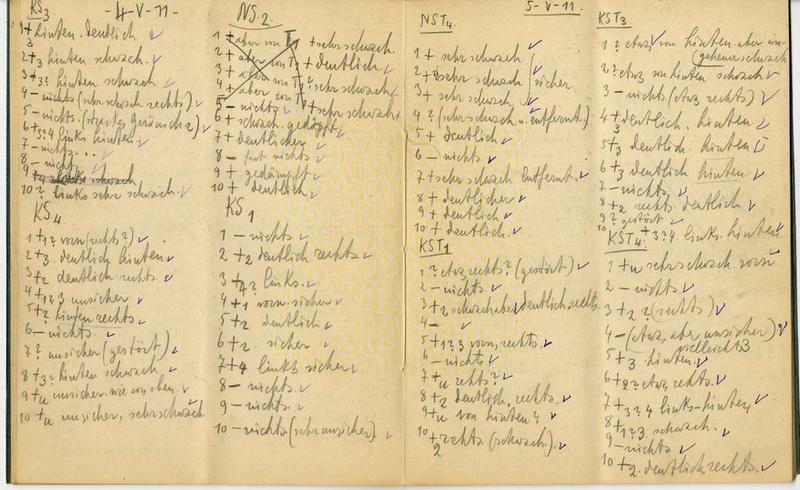 KS3 -4-V-11-
1+ hinten. deutlich
3
2+3 hinten schwach.
3+3? hinten schwach.
4- nichts (sehr schwach rechts)
5- nichts.
6+3?4 links hinten
7- nichts...
8- nichts
9
10? links sehr schwach.
KS4
1+1? vorn (rechts?)
2+3. deutlich hinten
3+2 deutlich rechts.
4+1?3 unsicher
5+2? hinten rechts
6- nichts.
7? unsicher (gestört)
8+3? hinten schwach.
9+u unsicher. wie von oben.
10+u unsicher, sehr schwach
NS2
1+ aber von T1 + sehr schwach.
2+ aber von T1 + deutlich
3+ aber von T1? sehr schwach
4+ aber von T1 + sehr schwach
5- nichts
6+ schwach, gedämpft
7+ deutlicher
8- fast nichts
9+ gedämpft
10+ deutlich
KS1
1- nichts.
2+2 deutlich rechts.
3+4? links.
4+1 vorn. sicher
5+2 deutlich
6+2 sicher
7+4 links sicher
8- nichts.
9- nichts.
10- nichts (sehr unsicher)
NST4 5-V-11.
1+ sehr schwach
2+? sehr schwach sicher
3+ sehr schwach
4? (sehr schwach u. entfernt.)
5+ deutlich
6- nichts
7+ sehr schwach entfernt.
8+ deutlicher
9+ deutlich
10+ deutlich.
KST1
1? etwas rechts? (gestört)
2- nichts.
3+2 schwach aber deutlich rechts.
4-
5+1?3 vorn, rechts.
6- nichts
7+u rechts?
8+2 deutlich, rechts.
9+u von hinten?
10+ rechts. (schwach.)
2
KST3
1? etwas von hinten aber un-
geheuer schwach
2? etwas von hinten schwach
3- nichts (etwas rechts)
4+ deutlich, hinten
3
5+3 deutlich. hinten
6+3 deutlich hinten
7- nichts.
8+2 rechts. deutlich
9? gestört
10+3?4 links. hinten
KST4
1+u sehr schwach. vorn
2- nichts.
3+2 ? (rechts)
4- (etwas, aber unsicher)
5+3 hinten. vielleicht 3
6+2? etwas rechts.
7+3?4 links-hinten,
8+1?3 schwach.
9- nichts
10+2. deutlich rechts.